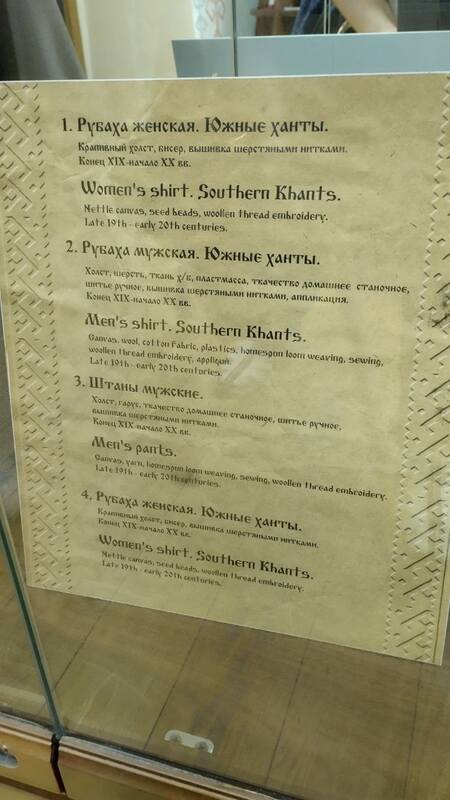 1. Рубаха женская. Южные ханты.
Крапивный холст, бисер, вышивка шерстяными нитками.
Конец XIX-начало XX вв.
Women's shirt. Southern Khants.
Nettle canvas, seed beads, woollen thread embroidery.
Late 19th - early 20th centuries.
2. Рубаха мужская. Южные ханты.
Холст, шерсть, ткань х/б, пластмасса, ткачество домашнее станочное,
шитье ручное, вышивка шерстяными нитками, аппликация.
Конец XIX-начало XX вв.
Men's shirt. Southern Khants.
Canvas, wool, cotton fabric, plastics, homespun loom weaving, sewing,
woollen thread embroidery, appliqué.
Late 19th - early 20th centuries.
3. Штаны мужские.
Холст, гарус, ткачество домашнее станочное, шитье ручное,
вышивка шерстяными нитками.
Конец XIX-начало XX вв.
Men's pants.
Canvas, yarn, homespun loom weaving, sewing, woollen thread embroidery.
Late 19th - early 20th centuries.
4. Рубаха женская. Южные ханты.
Крапивный холст, бисер, вышивка шерстяными нитками.
Конец XIX-начало XX вв.
Women's shirt. Southern Khants.
Nettle canvas, seed beads, woollen thread embroidery.
Late 19th - early 20th centuries.